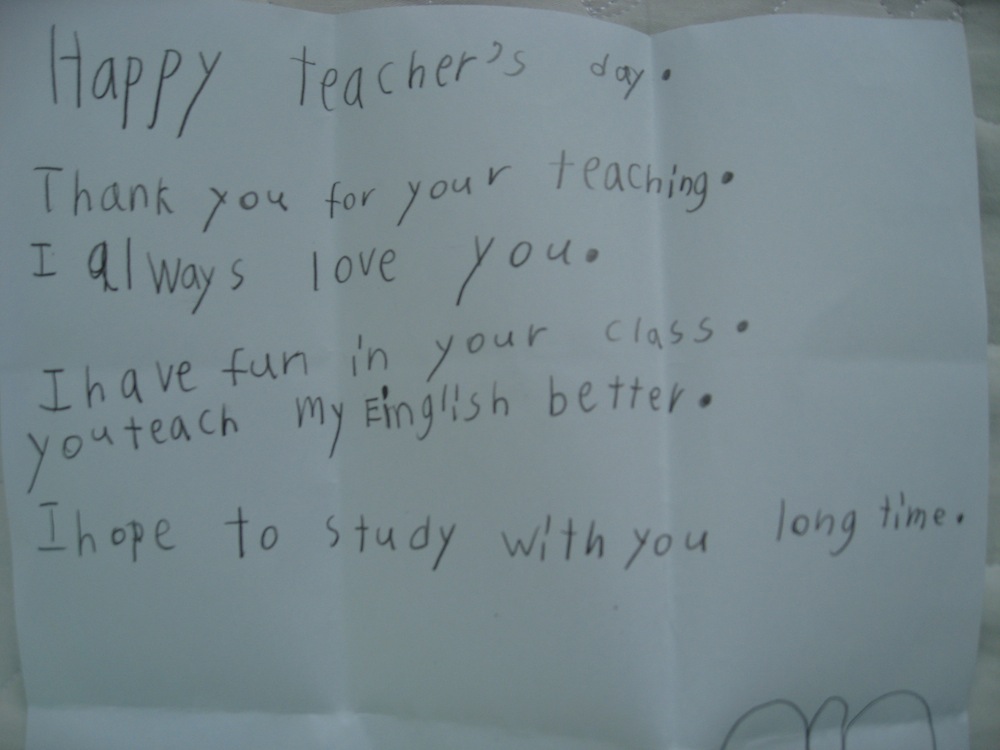 Happy teacher's day.
Thank you for your teaching.
I always love you.
I have fun in your class.
you teach my Einglish better.
I hope to study with you long time.